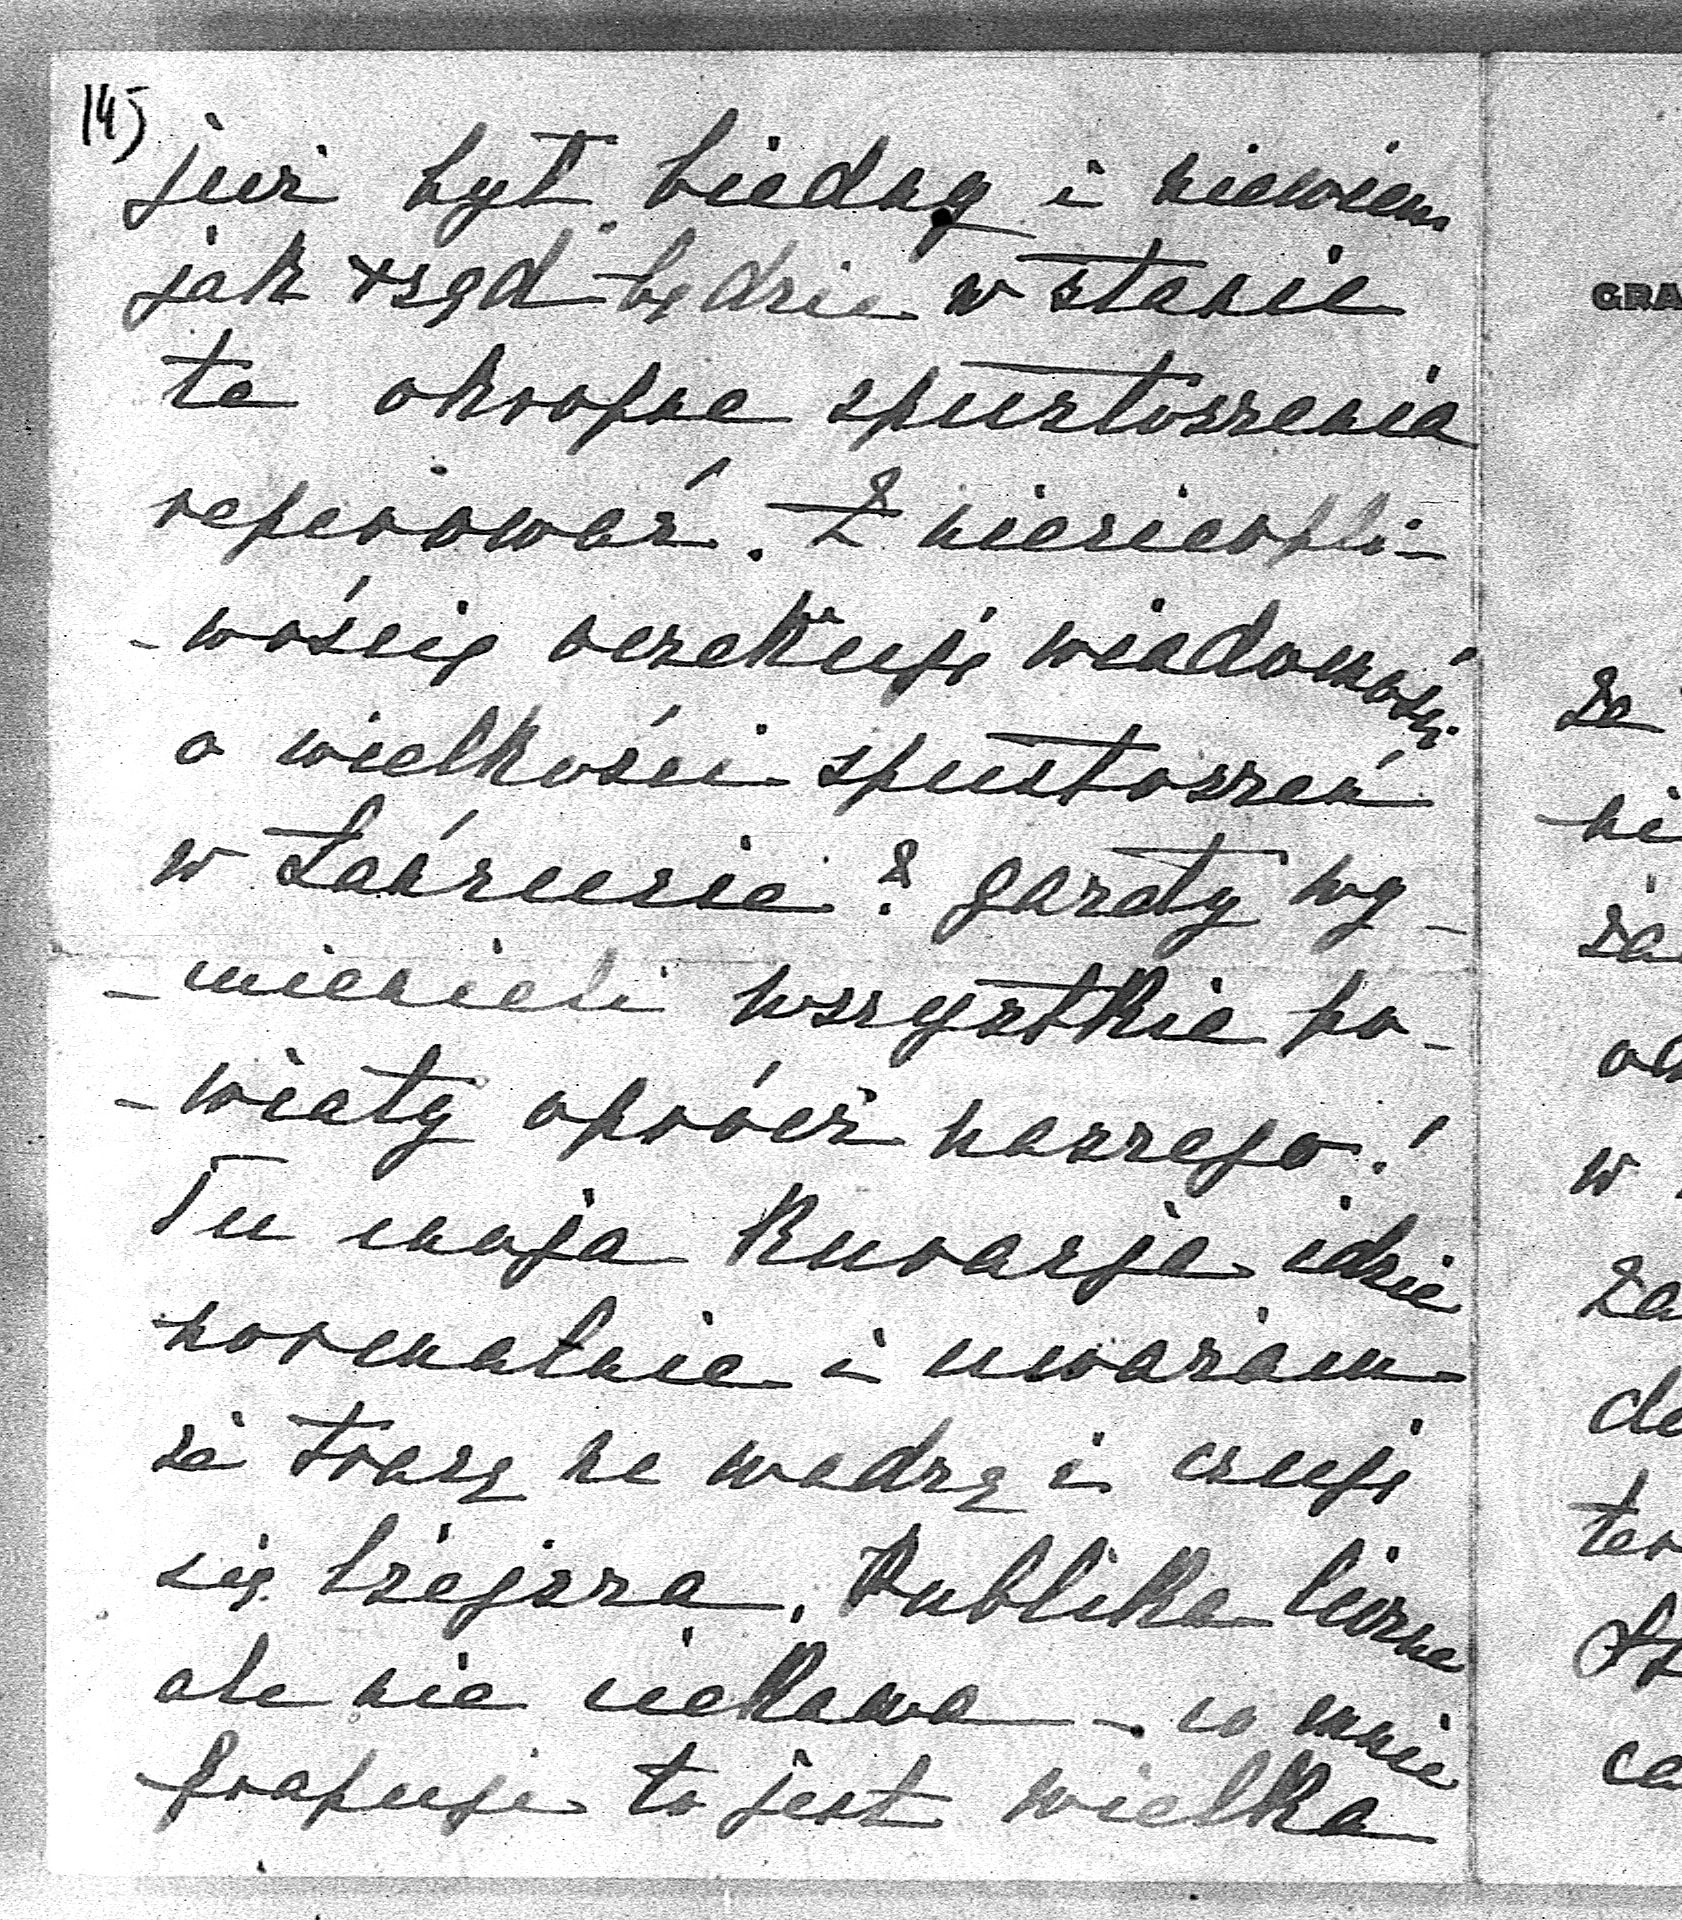 145
już byt biedny i niewiem
jak rząd będzie w stanie
te okropne spustoszenia
reperować. Z niecierpli-
-wością oczekuję wiadomości
o wielkości spustoszeń
w Łańcucie? gazety wy-
-mienili wszystkie po-
-wiaty oprócz naszego!
Tu moja kuracja idzie
normalnie i uważam
że tracę na wadze i czuję
się lżejsza. Publika liczna
ale nie ciekawa - co mnie
frapuje to jest wielka
GRA
że
ni
za
w
za
do
ter
ca